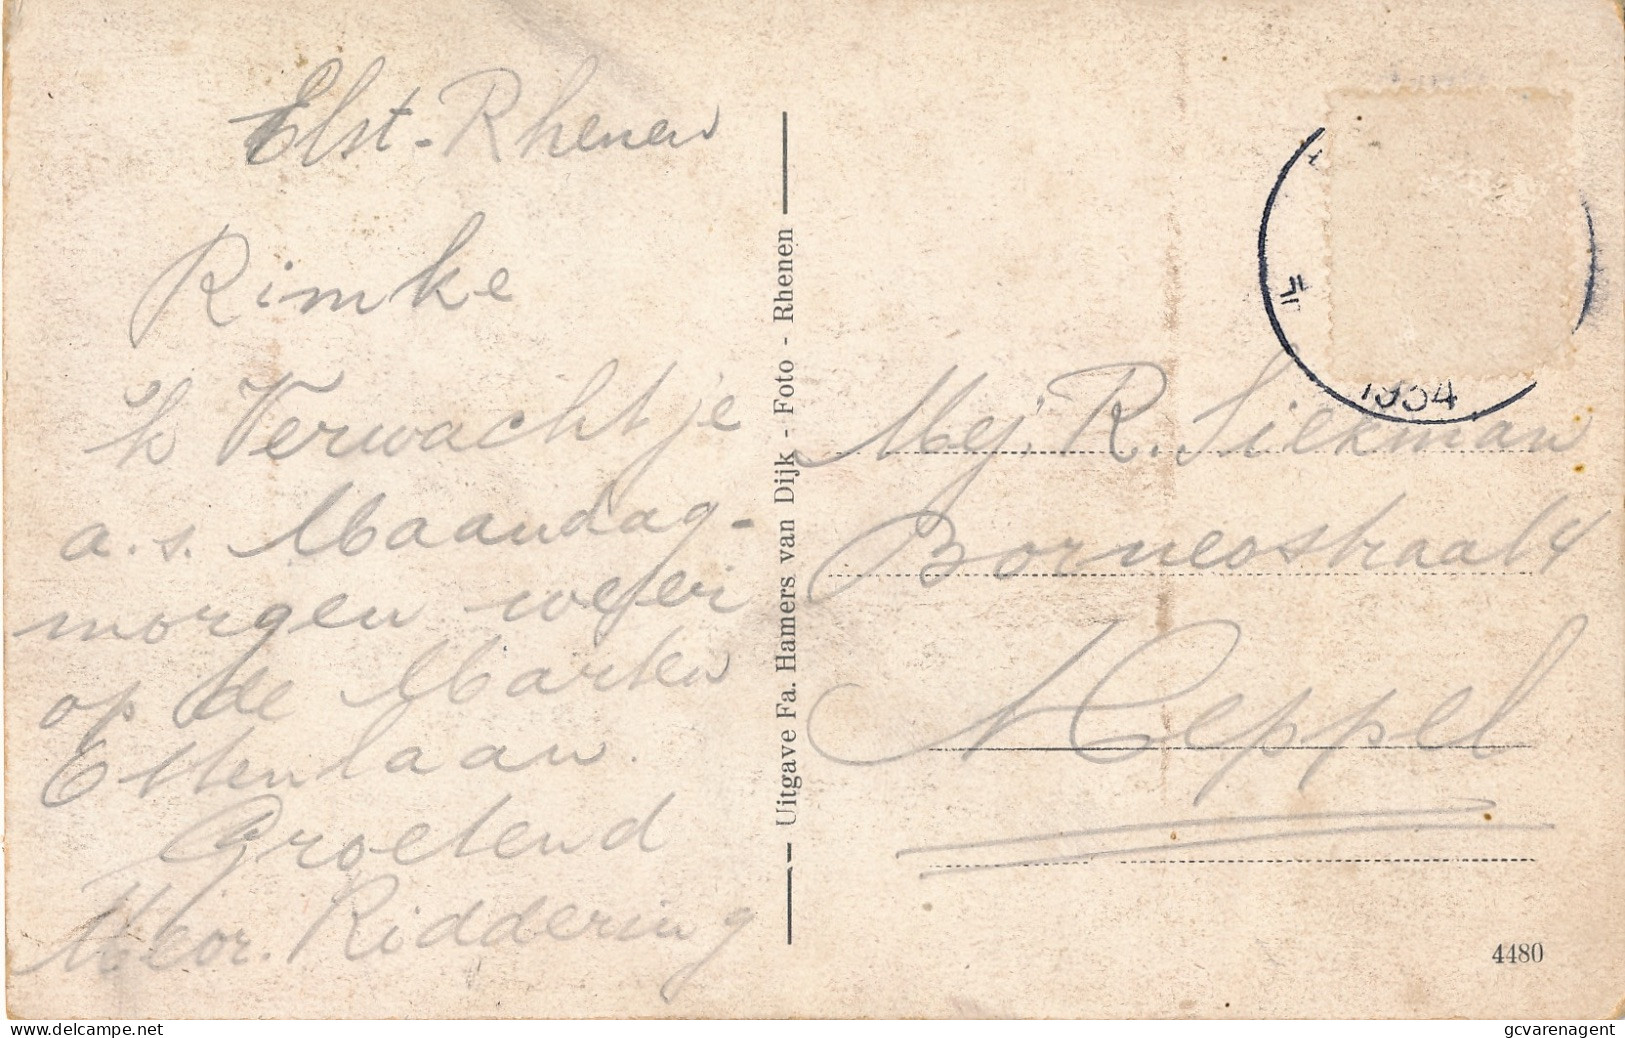 Elst-Rhenen
Rimke
ik Verwacht je
a.s. Maandag-
morgen weer
op de Marken
Ettenlaan.
Groetend
Riddering
Uitgave Fa. Hamers van Dijk - Foto - Rhenen
1934
Mej. R. Siekman
Borneostraat
Meppel
4480
delcampe.net
gcvarenagent